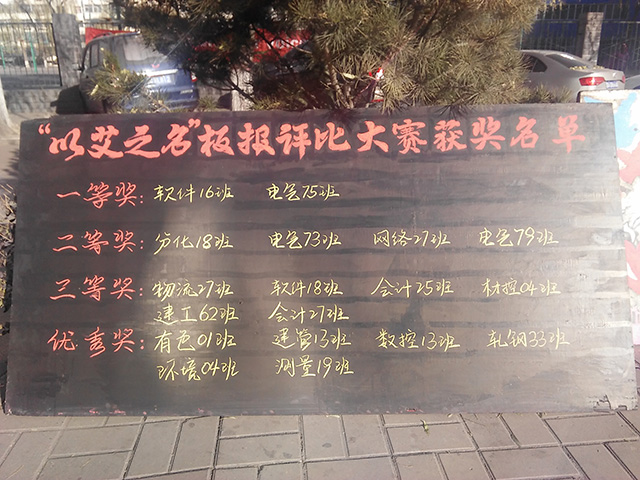 “以艾之名”板报评比大赛获奖名单
一等奖: 软件16班 电气75班
二等奖: 分化18班 电气73班 网络27班 电气79班
三等奖: 物流27班 软件18班 会计25班 材控04班
建工62班 会计27班
优秀奖: 有色01班 建管13班 数控13班 轧钢33班
环境04班 测量19班